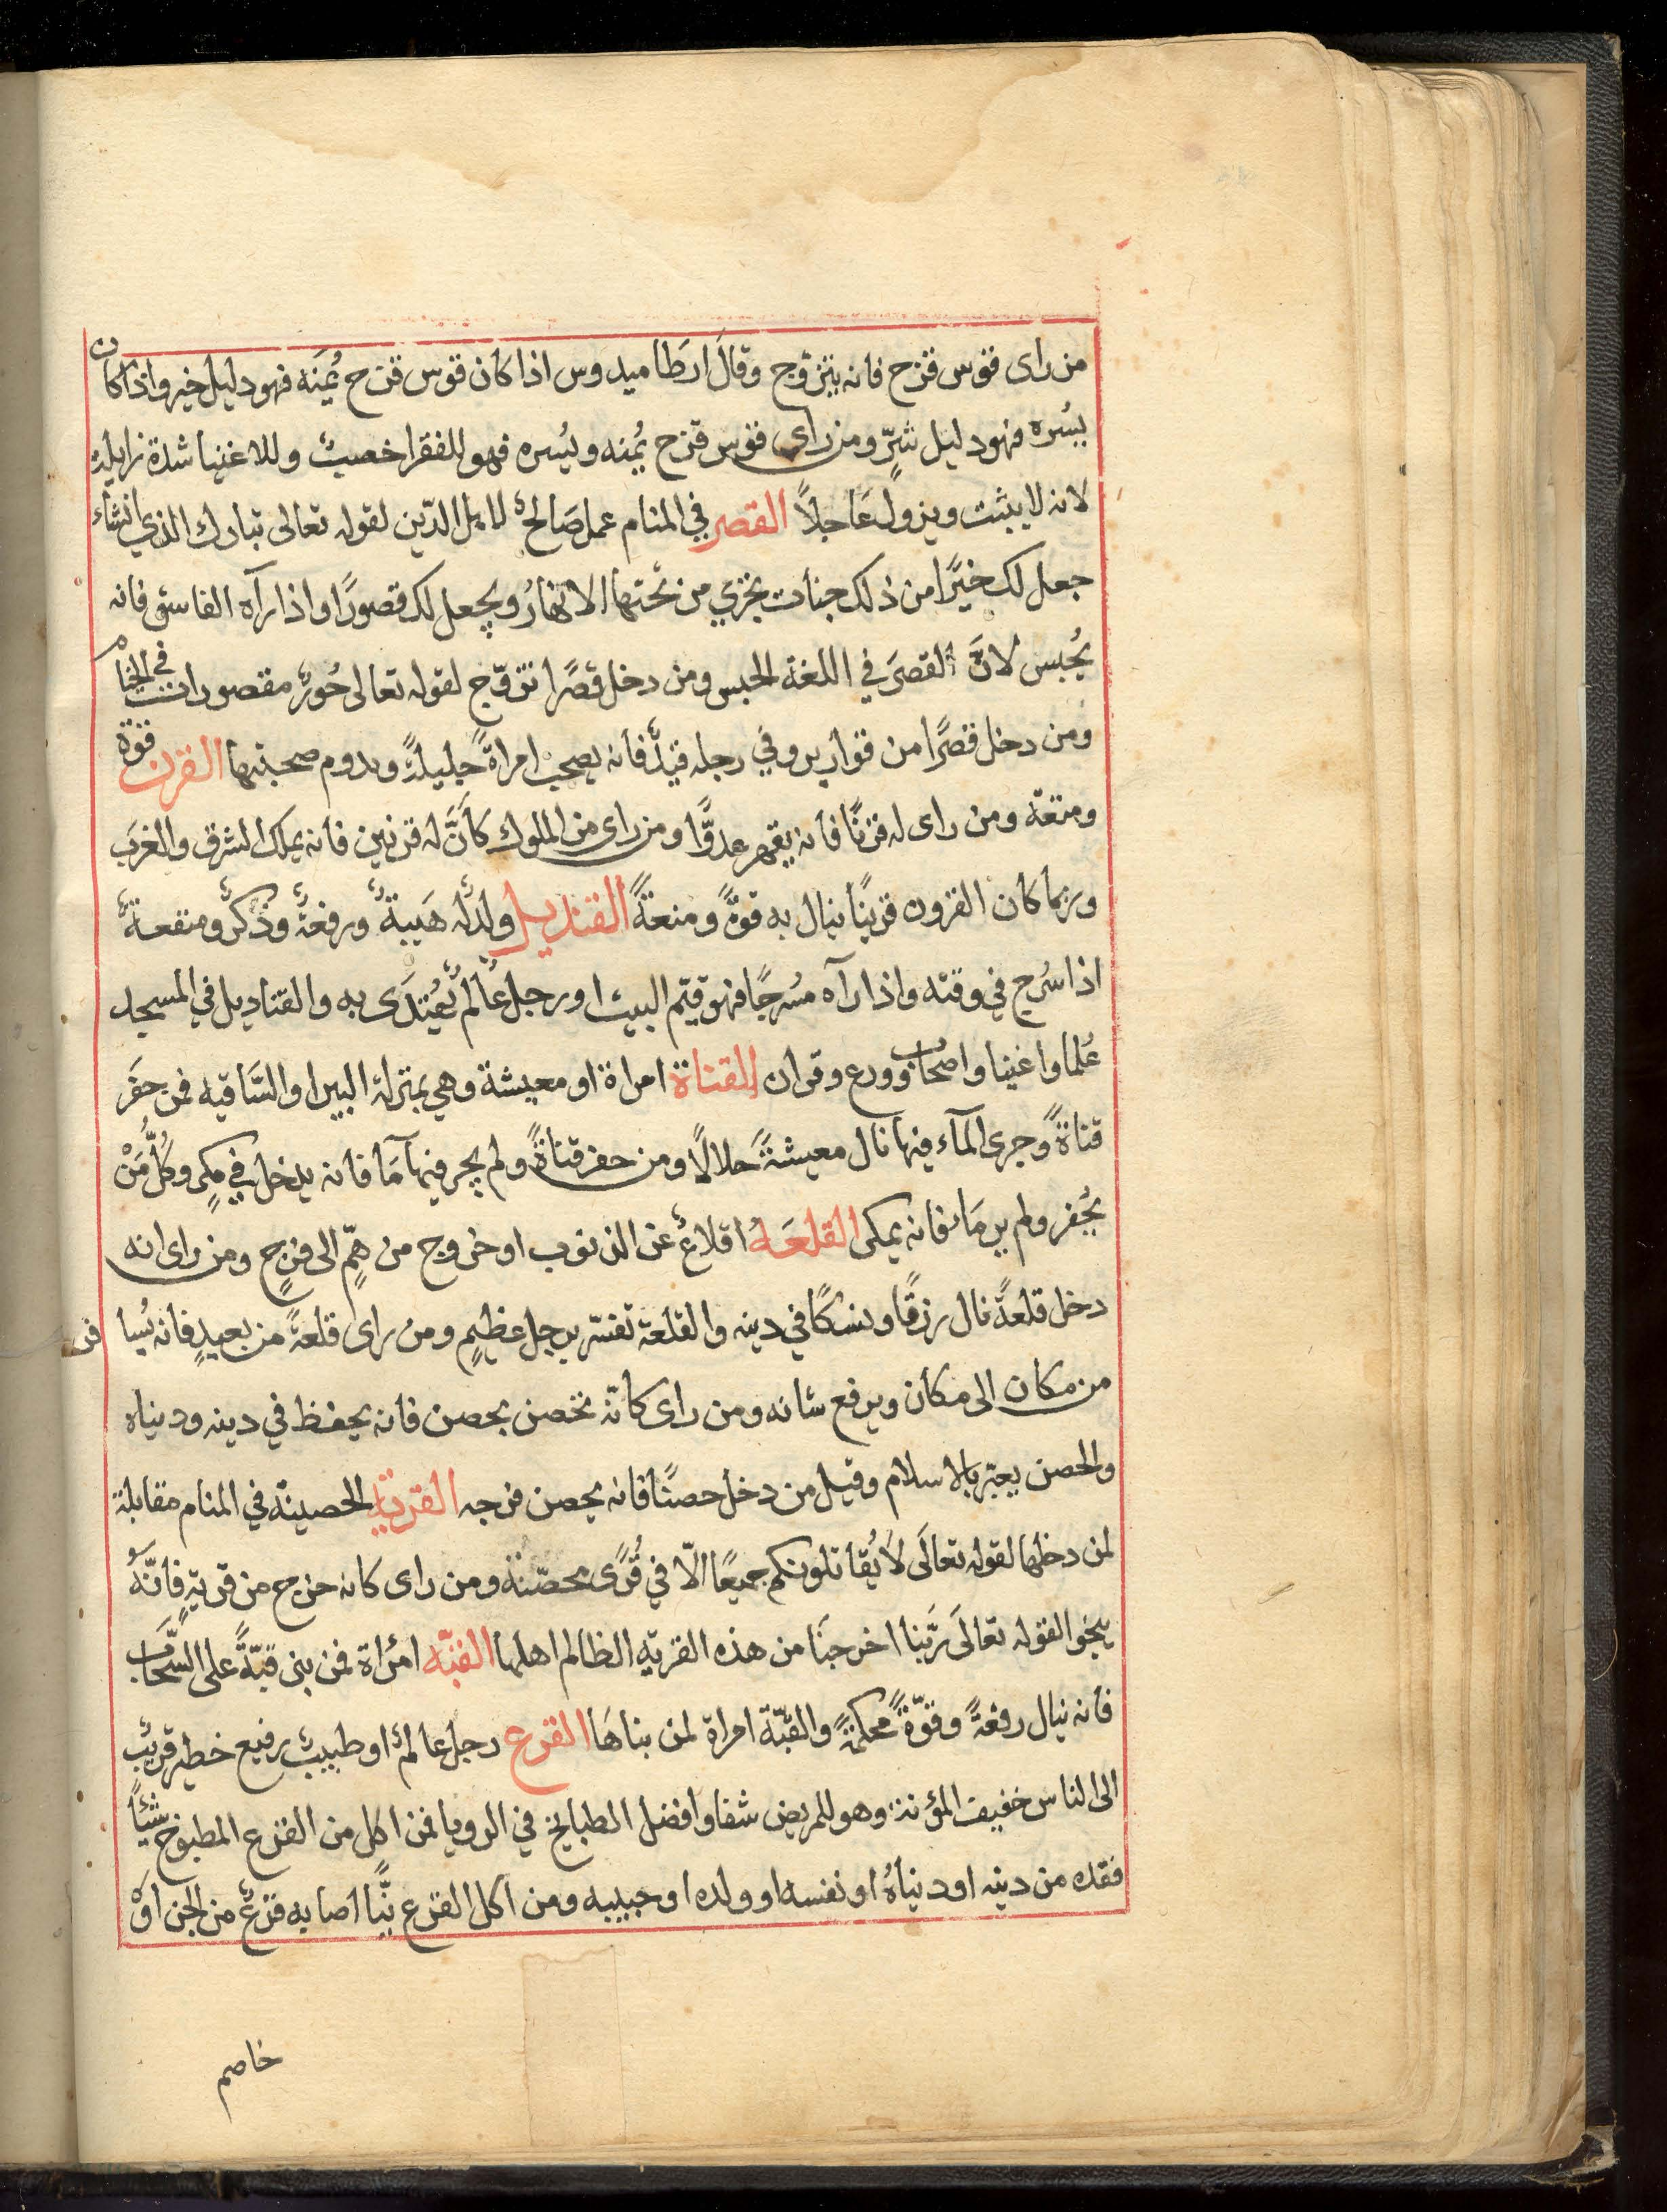 من راى قوس قزح فانه يتزوج وقال ارطاميدوس اذا كان قوس قزح يُمنَه فهو دليل خير واذا كان
يسُره فهو دليل شرٍّ ومن راى قوس قزح يُمنه ويُسره فهو للفقرا خصبٌ وللاغنيا شدة زايلة
لانه لا يثبت ويزول عَاجلاً القصر في المنام عمل صَالحٌ لاهل الدّين لقوله تعالى تبارك الذي ان شاء
جعل لك خيرًا من ذلك جنات تجري من تحتها الانهارُ ويجعل لك قصورًا واذا رآه الفاسق فانه
يُحبس لانَّ القصرَ في اللغة الحبس ومن دخل قصرًا تزوّج لقوله تعالى حُورٌ مقصورات في الخيام
ومن دخل قصرًا من قوارير وفي رجله قيدٌ فانه يصحب امراةً جليلةً ويدوم صحبتها القرن قوة
ومنعة ومن راى له قرنًا فانه يقهر عدوًّا ومن راى من الملوك كانَّ له قرنين فانه يملك الشرق والغرَب
وربما كان القرون قرينًا ينال به قوةً ومنعةً القنديل ولدٌ له هَيبةٌ ورفعةٌ وذكرٌ ومنفعةٌ
اذا سُرج في وقته واذا رآه مسُرجًا فهو قيّم البيت او رجل عالمٌ يُقتدَى به والقناديل في المسجد
عُلما واغنيا واصحاب وورع وقران القناة امراة او معيشة وهي بمنزلة البير او السَّاقيه فمن حفَر
قناةً وجرى المآء فيها نال معيشةً حلالاً ومن حفر قناةً ولم يجر فيها مَآ فانه يدخل في مكرٍ وكلُّ مَنْ
يحُفر ولم ير مَاء فانه يمكر القلعَة اقلاعٌ عن الذنوب او خروج من همٍّ الى فرجٍ ومن راى انه
دخل قلعةً نال رزقًا ونسكًا في دينه والقلعة تفسّر برجل عظيمٍ ومن راى قلعةً من بعيدٍ فانه يُسا فر
من مكان الى مكان ويرفع شانه ومن راى كانّه تحصن بحصن فانه يحفظ في دينه ودنياه
والحصن يعبّر بالاسلام وقيل من دخل حصنًا فانه يحصن فرجه القرية الحصينة في المنام مقابلة
لمن دخلها لقوله تعالَى لاَ يُقاتلونكم جميعًا الّا في قُرًى محصّنة ومن راى كانه خرج من قريةٍ فانّهُ
ينجوا لقوله تعالَى رَبّنا اخرجنَا من هذه القرية الظالم اهلها القبّه امرٔاة فمن بنى قبّةً على السَّحاب
فانه ينال رفعةً وقوّةً محكمةً والقبّة امراة لمن بناهَا القرع رجل عالمٌ او طبيبٌ رفيع خطير قريبٌ
الى الناس خفيف المؤنة وهو للمريض شفا وافضل الطبايخ في الرويا فمن اكل من القرع المطبوخ شيئًا
فقده من دينه او دنياهُ او نفسه او ولده او حبيبه ومن اكل القرع نيًّا اصابه فزعٌ من الجن اوْ
خاصم